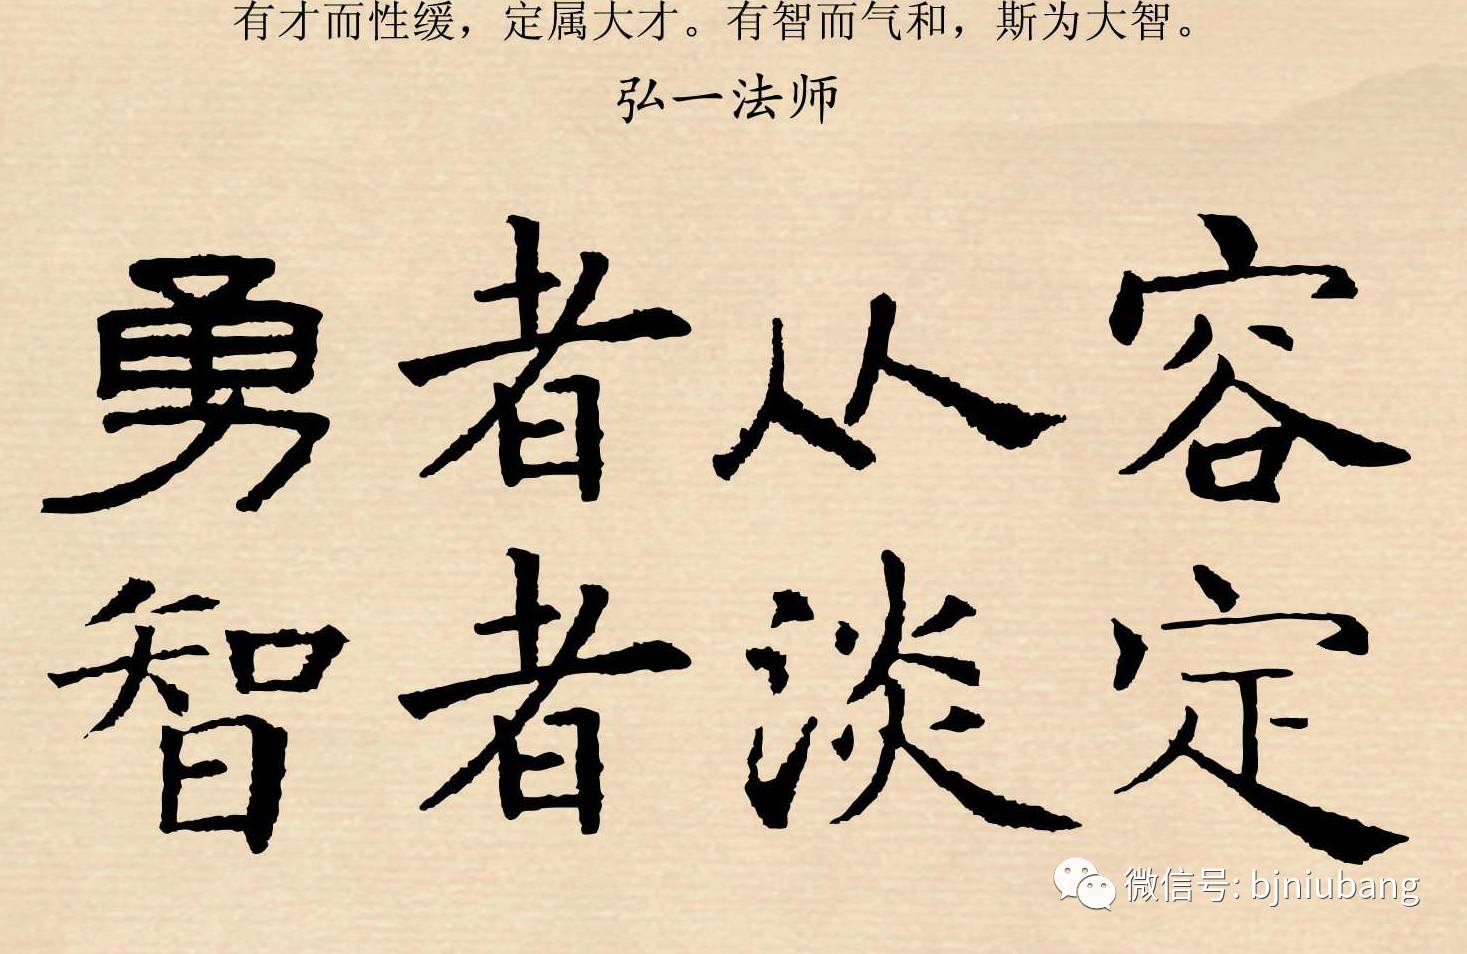 有才而性缓，定属大才。有智而气和，斯为大智。
弘一法师
勇者从容
智者淡定
微信号: bjniubang